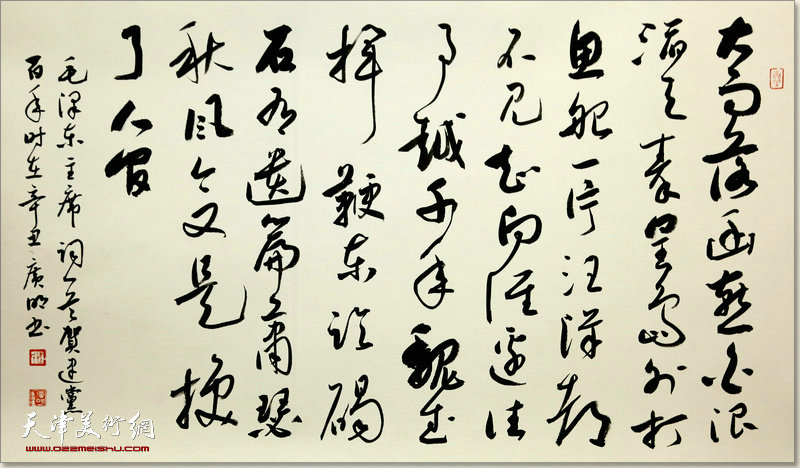 大雨落幽燕白浪
滔天秦皇島外打
魚船一片汪洋都
不见知向谁边往
事越千年魏武
挥鞭东临碣
石有遗篇萧瑟
秋风今又是换
了人间
毛泽东主席词一首贺建黨
百年时在辛丑廣明书
天津美術網
www.022meishu.com